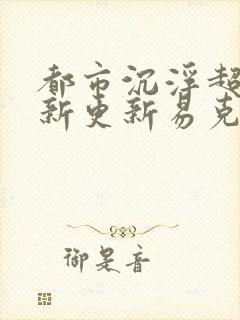 都市沉浮超
新更新易克
御是音